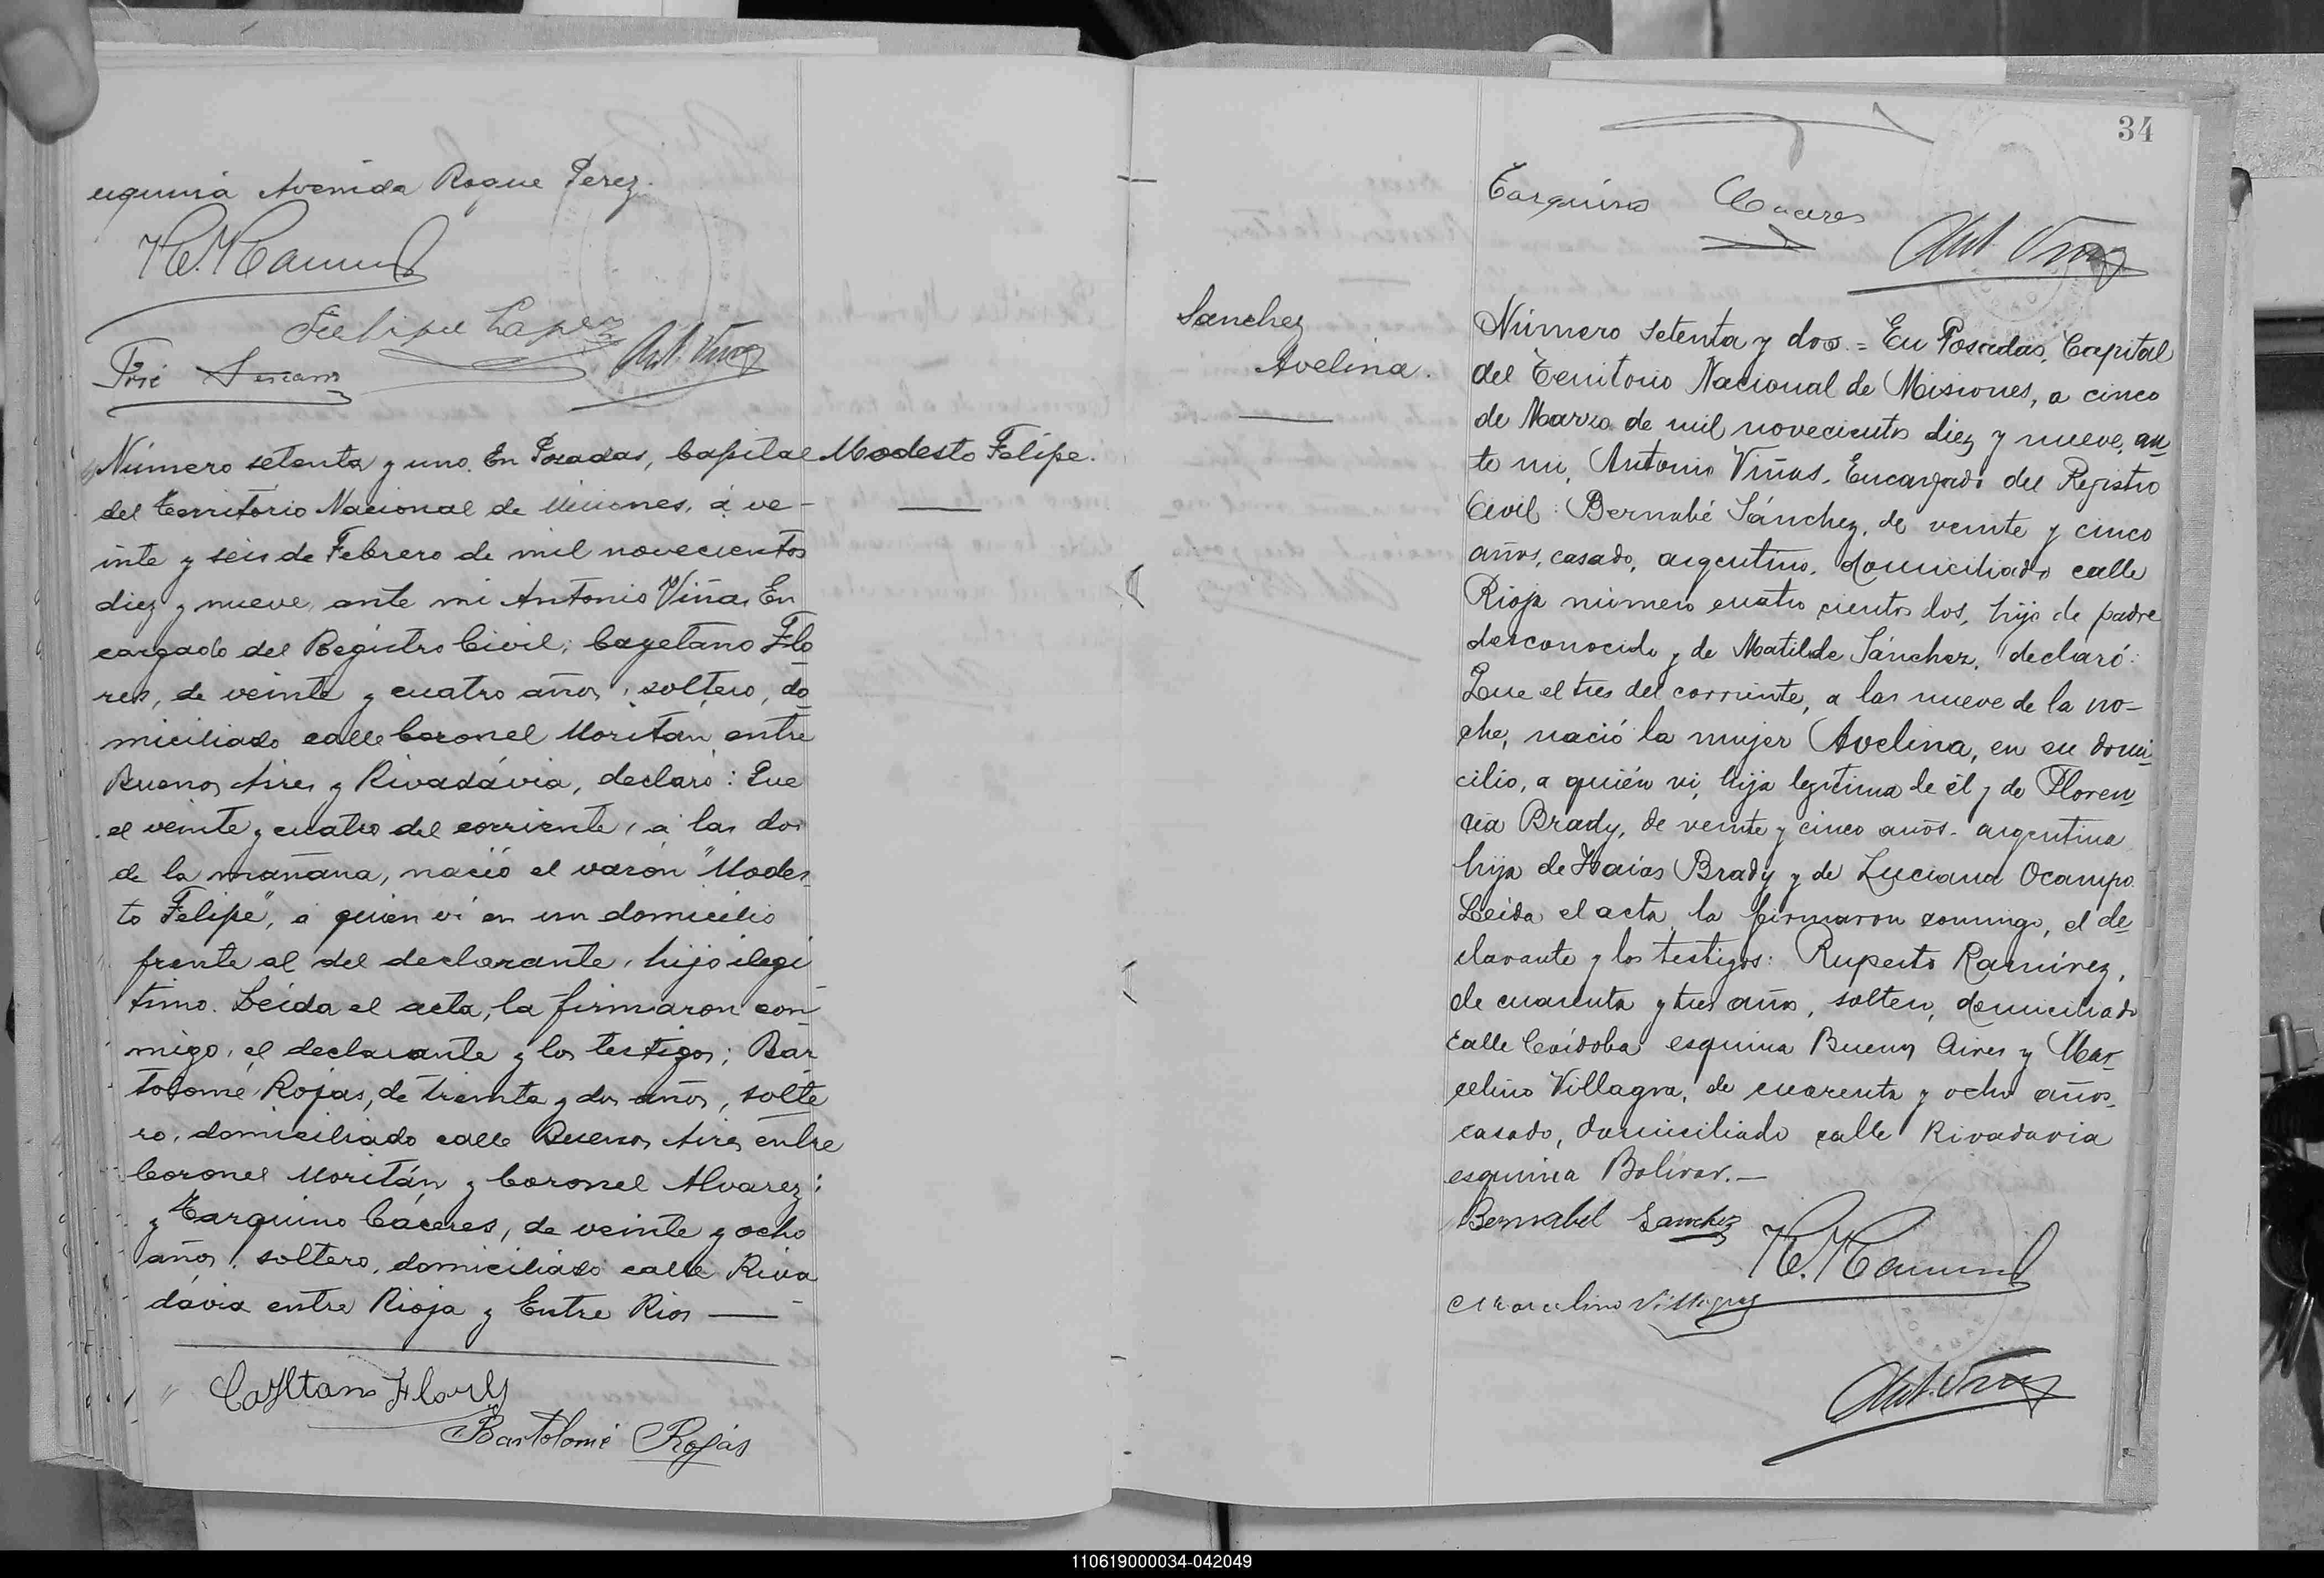 esquina Avenida Roque Perez.
R. Ramirez
Felipe Lopez
José
Ant. Viñas
Número setenta y uno. En Posadas, Capital
Modesto Felipe.
del Territorio Nacional de Misiones, á ve-
inte y seis de Febrero de mil novecientos
diez y nueve, ante mi Antonio Viñas En
cargado del Registro Civil; Cayetano Flo
res, de veinte y cuatro años, soltero, do
miciliado calle Coronel Moritan entre
Buenos Aires y Rivadávia, declaró: Que
el veinte y cuatro del corriente, a las dos
de la mañana, nació el varón "Modes
to Felipe", á quien vi en un domicilio
frente al del declarante, hijo ilegi
timo. Leida el acta, la firmaron con
migo, el declarante y los testigos; Bar
tolomé Rojas, de treinta y dos años, solte
ro, domiciliado calle Buenos Aires entre
Coronel Moritán y Coronel Alvarez;
y Tarquino Cáceres, de veinte y ocho
años, soltero, domiciliado calle Riva
dávia entre Rioja y Entre Rios —
Cayetano Flores
Bartolomé Rojas
34
Tarquino Caceres
Ant Viñas
Sanchez
Avelina.
Número setenta y dos = En Posadas, Capital
del Territorio Nacional de Misiones, a cinco
de Marzo de mil novecientos diez y nueve, an
te mi, Antonio Viñas, Encargado del Registro
Civil: Bernabé Sánchez, de veinte y cinco
años, casado, argentino, domiciliado calle
Rioja número cuatro cientos dos, hijo de padre
desconocido y de Matilde Sánchez, declaró:
Que el tres del corriente, a las nueve de la no-
che, nació la mujer Avelina, en su domi
cilio, a quién vi, hija legítima de él y de Floren
cia Brady, de veinte y cinco años, argentina
hija de Isaías Brady y de Luciana Ocampo.
Leida el acta, la firmaron conmigo, el de
clarante y los testigos: Ruperto Ramirez,
de cuarenta y tres años, soltero, domiciliado
calle Córdoba esquina Buenos Aires y Mar
celino Villagra, de cuarenta y ocho años,
casado, domiciliado calle Rivadavia
esquina Bolívar.—
Bernabel Sanchez
R. Ramirez
Marcelino Villagra
Ant. Viñas
110619000034-042049